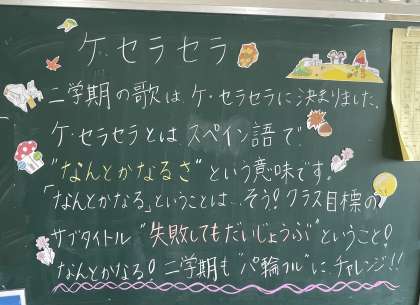 ケ・セラセラ
二学期の歌は、ケ・セラセラに決まりました。
ケ・セラセラとはスペイン語で
"なんとかなるさ"という意味です。
「なんとかなる」ということは…そう!クラス目標の
サブタイトル"失敗してもだいじょうぶ"ということ!
なんとかなる!二学期も"パ輪フル"にチャレンジ!!